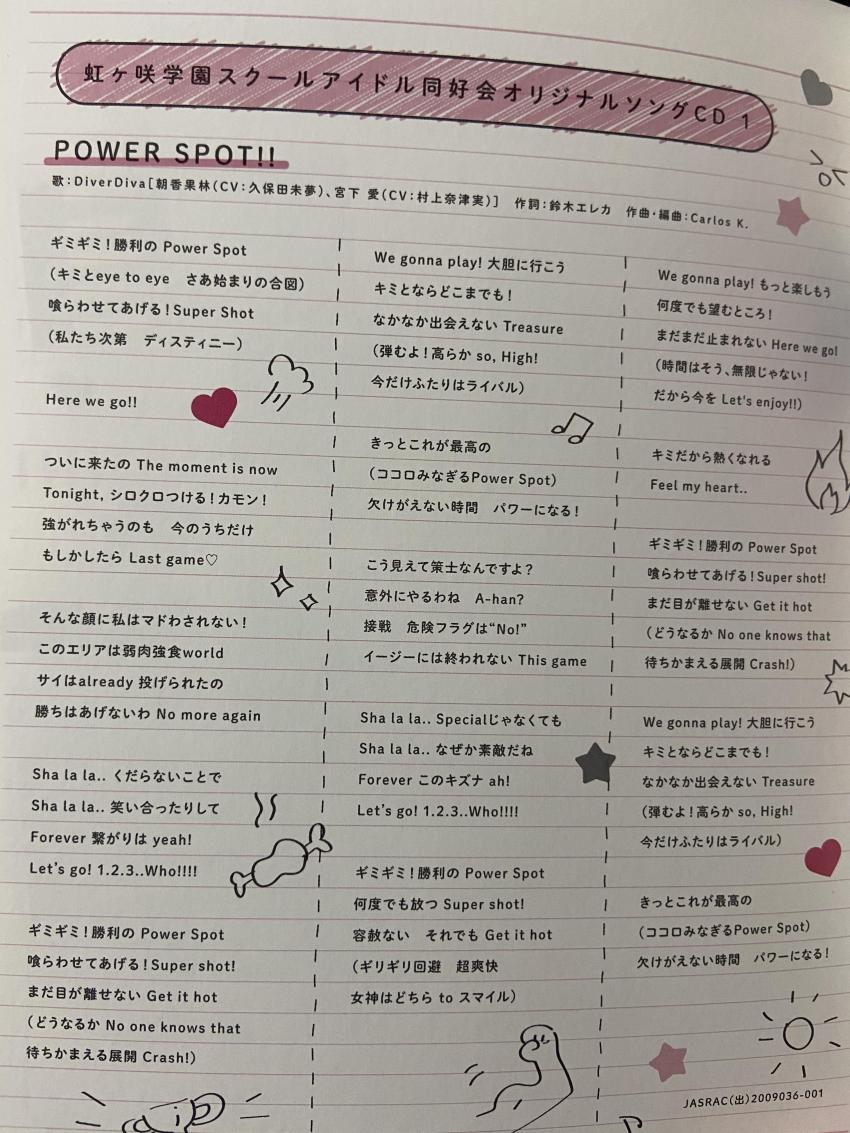 虹ヶ咲学園スクールアイドル同好会オリジナルソングCD 1
POWER SPOT!!
歌:DiverDiva[朝香果林(CV:久保田未夢)、宮下 愛(CV:村上奈津実)] 作詞:鈴木エレカ 作曲・編曲:Carlos K.
ギミギミ!勝利の Power Spot
(キミとeye to eye さあ始まりの合図)
喰らわせてあげる!Super Shot
(私たち次第 ディスティニー)
Here we go!!
ついに来たの The moment is now
Tonight, シロクロつける!カモン!
強がれちゃうのも 今のうちだけ
もしかしたら Last game♡
そんな顔に私はマドわされない!
このエリアは弱肉強食world
サイはalready 投げられたの
勝ちはあげないわ No more again
Sha la la.. くだらないことで
Sha la la.. 笑い合ったりして
Forever 繋がりは yeah!
Let's go! 1.2.3..Who!!!!
ギミギミ!勝利の Power Spot
喰らわせてあげる!Super shot!
まだ目が離せない Get it hot
(どうなるか No one knows that
待ちかまえる展開 Crash!)
We gonna play! 大胆に行こう
キミとならどこまでも!
なかなか出会えない Treasure
(弾むよ!高らか so, High!
今だけふたりはライバル)
きっとこれが最高の
(ココロみなぎるPower Spot)
欠けがえない時間 パワーになる!
こう見えて策士なんですよ?
意外にやるわね A-han?
接戦 危険フラグは“No!”
イージーには終われない This game
Sha la la.. Specialじゃなくても
Sha la la.. なぜか素敵だね
Forever このキズナ ah!
Let's go! 1.2.3..Who!!!!
ギミギミ!勝利の Power Spot
何度でも放つ Super shot!
容赦ない それでも Get it hot
(ギリギリ回避 超爽快
女神はどちら to スマイル)
We gonna play! もっと楽しもう
何度でも望むところ!
まだまだ止まれない Here we go!
(時間はそう、無限じゃない!
だから今を Let's enjoy!!)
キミだから熱くなれる
Feel my heart..
ギミギミ!勝利の Power Spot
喰らわせてあげる!Super shot!
まだ目が離せない Get it hot
(どうなるか No one knows that
待ちかまえる展開 Crash!)
We gonna play! 大胆に行こう
キミとならどこまでも!
なかなか出会えない Treasure
(弾むよ!高らか so, High!
今だけふたりはライバル)
きっとこれが最高の
(ココロみなぎるPower Spot)
欠けがえない時間 パワーになる!
JASRAC(出)2009036-001